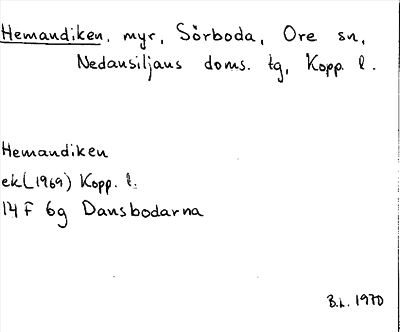 Hemandiken, myr, Sörboda, Ore sn,
Nedansiljans doms. tg, Kopp. l.
Hemandiken
ek (1969) Kopp. l.
14 F 6g Dansbodarna
B.L. 1970